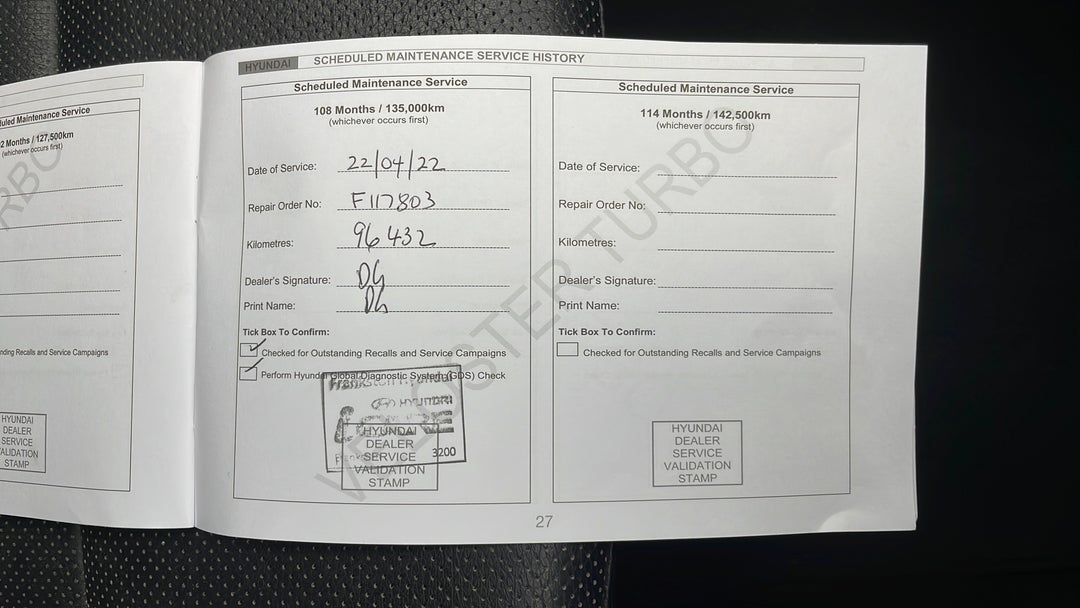 HYUNDAI SCHEDULED MAINTENANCE SERVICE HISTORY
duled Maintenance Service
2 Months / 127,500km
(whichever occurs first)
nding Recalls and Service Campaigns
HYUNDAI
DEALER
SERVICE
VALIDATION
STAMP
Scheduled Maintenance Service
108 Months / 135,000km
(whichever occurs first)
Date of Service: 22/04/22
Repair Order No: F117803
Kilometres: 96 432
Dealer's Signature: DG
Print Name: DG
Tick Box To Confirm:
Checked for Outstanding Recalls and Service Campaigns
Perform Hyundai Global Diagnostic System (GDS) Check
Frankston Hyundai
HYUNDAI
3200
HYUNDAI
DEALER
SERVICE
VALIDATION
STAMP
Scheduled Maintenance Service
114 Months / 142,500km
(whichever occurs first)
Date of Service:
Repair Order No:
Kilometres:
Dealer's Signature:
Print Name:
Tick Box To Confirm:
Checked for Outstanding Recalls and Service Campaigns
HYUNDAI
DEALER
SERVICE
VALIDATION
STAMP
VELOSTER TURBO
27